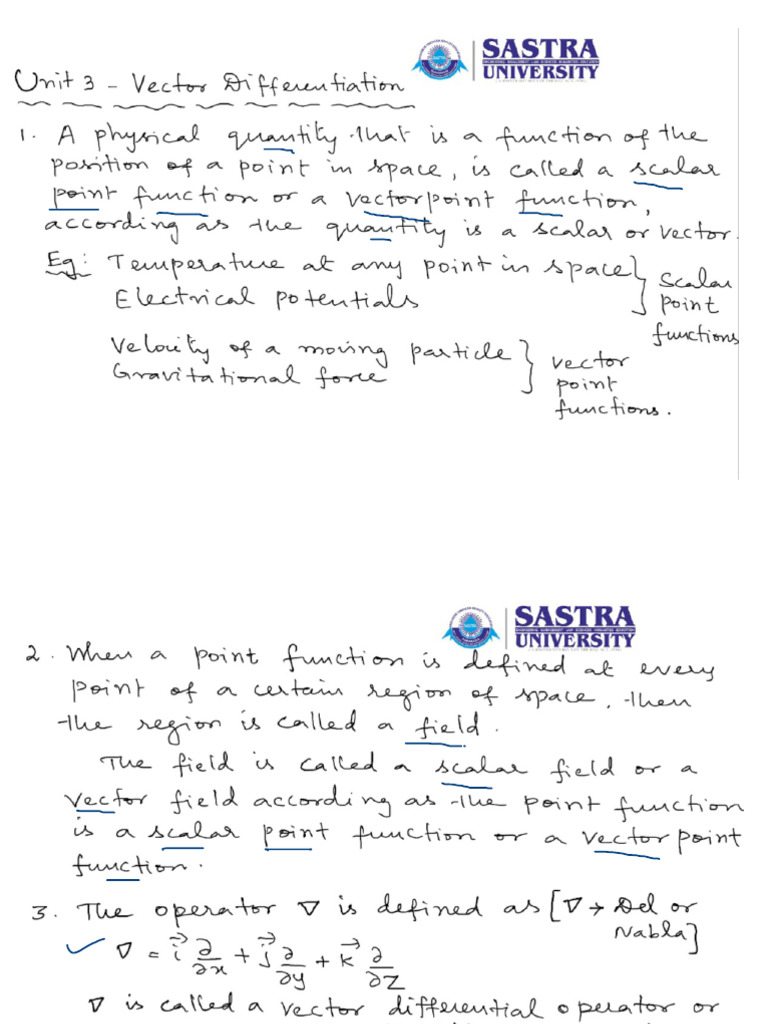 SASTRA
UNIVERSITY
Unit 3 - Vector Differentiation
1. A physical quantity that is a function of the
position of a point in space, is called a scalar
point function or a vector point function,
according as the quantity is a scalar or vector.
Eg: Temperature at any point in space } Scalar
Electrical potentials point
functions
Velocity of a moving particle } vector
Gravitational force point
functions.
SASTRA
UNIVERSITY
2. When a point function is defined at every
point of a certain region of space, then
the region is called a field.
The field is called a scalar field or a
vector field according as the point function
is a scalar point function or a vector point
function.
3. The operator ∇ is defined as [∇ → Del or
Nabla]
∇ = i⃗ ∂/∂x + j⃗ ∂/∂y + k⃗ ∂/∂z
∇ is called a vector differential operator or